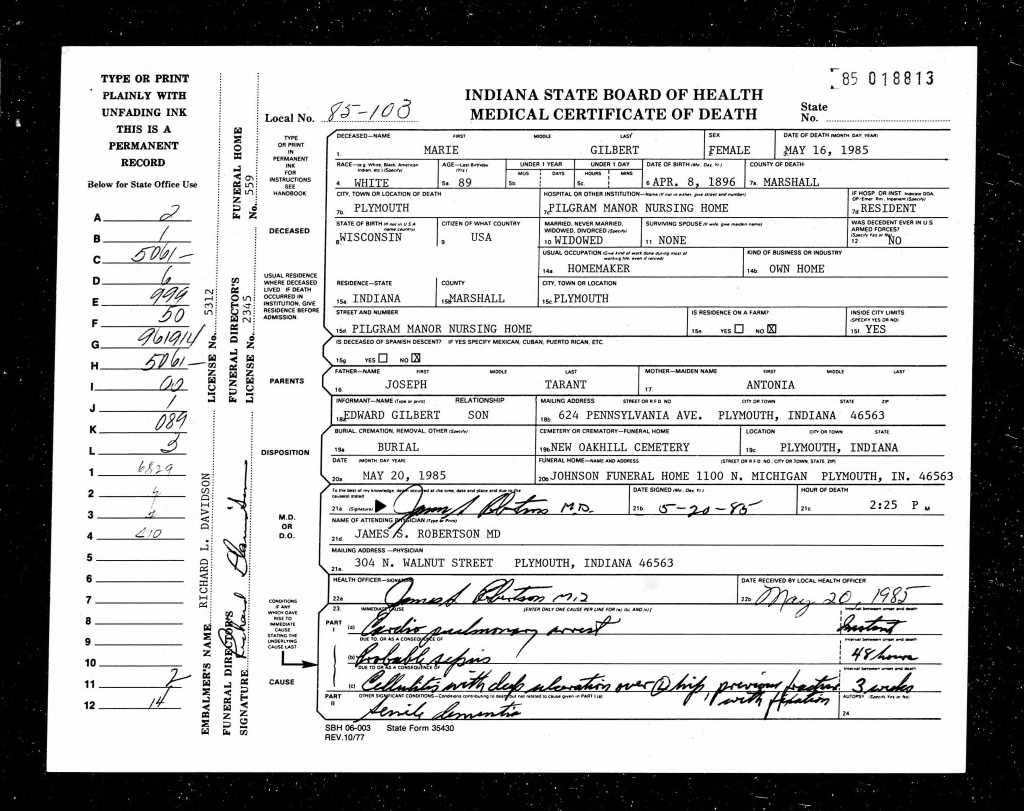 85 018813
TYPE OR PRINT
PLAINLY WITH
UNFADING INK
THIS IS A
PERMANENT
RECORD
Below for State Office Use
A 2
B 1
C 5061-
D 6
E 999
F 50
G 961914
H 5061-
I 00
J 1
K 089
L 3
1 6829
2
3
4
5
6
7
8
9
10
11 2
12 14
EMBALMER'S NAME RICHARD L. DAVIDSON LICENSE No. 5312
FUNERAL DIRECTOR'S SIGNATURE
FUNERAL DIRECTOR'S LICENSE No. 2345
FUNERAL HOME No. 559
INDIANA STATE BOARD OF HEALTH
MEDICAL CERTIFICATE OF DEATH
Local No. 85-103
State No.
TYPE OR PRINT IN PERMANENT INK FOR INSTRUCTIONS SEE HANDBOOK
DECEASED—NAME FIRST MIDDLE LAST SEX DATE OF DEATH (MONTH, DAY, YEAR)
1. MARIE GILBERT FEMALE MAY 16, 1985
RACE—(e.g. White, Black, American Indian, etc.) (Specify) AGE—Last Birthday (Yrs.) UNDER 1 YEAR MOS DAYS UNDER 1 DAY HOURS MINS DATE OF BIRTH (Mo., Day, Yr.) COUNTY OF DEATH
4 WHITE 5a 89 5b 5c 6 APR. 8, 1896 7a MARSHALL
CITY, TOWN OR LOCATION OF DEATH HOSPITAL OR OTHER INSTITUTION—Name (If not in either, give street and number) IF HOSP. OR INST. Indicate DOA, OP/Emer. Rm., Inpatient (Specify)
7b PLYMOUTH 7c PILGRAM MANOR NURSING HOME 7d RESIDENT
DECEASED
STATE OF BIRTH (If not in U.S.A. name country) CITIZEN OF WHAT COUNTRY MARRIED, NEVER MARRIED, WIDOWED, DIVORCED (Specify) SURVIVING SPOUSE (If wife, give maiden name) WAS DECEDENT EVER IN U.S. ARMED FORCES? (Specify Yes or No)
8 WISCONSIN 9 USA 10 WIDOWED 11 NONE 12 NO
USUAL OCCUPATION (Give kind of work done during most of working life, even if retired) KIND OF BUSINESS OR INDUSTRY
14a. HOMEMAKER 14b. OWN HOME
USUAL RESIDENCE WHERE DECEASED LIVED. IF DEATH OCCURRED IN INSTITUTION, GIVE RESIDENCE BEFORE ADMISSION.
RESIDENCE—STATE COUNTY CITY, TOWN OR LOCATION
15a. INDIANA 15b. MARSHALL 15c. PLYMOUTH
STREET AND NUMBER IS RESIDENCE ON A FARM? INSIDE CITY LIMITS (SPECIFY YES OR NO)
15d. PILGRAM MANOR NURSING HOME 15e YES NO X 15f. YES
IS DECEASED OF SPANISH DESCENT? IF YES SPECIFY MEXICAN, CUBAN, PUERTO RICAN, ETC.
15g YES NO X
PARENTS
FATHER—NAME FIRST MIDDLE LAST MOTHER—MAIDEN NAME FIRST MIDDLE LAST
16. JOSEPH TARANT 17. ANTONIA
INFORMANT—NAME (Type or print) RELATIONSHIP MAILING ADDRESS STREET OR R.F.D. NO. CITY OR TOWN STATE ZIP
18a EDWARD GILBERT SON 18b 624 PENNSYLVANIA AVE. PLYMOUTH, INDIANA 46563
DISPOSITION
BURIAL, CREMATION, REMOVAL, OTHER (Specify) CEMETERY OR CREMATORY—FUNERAL HOME LOCATION CITY OR TOWN STATE
19a BURIAL 19b NEW OAKHILL CEMETERY 19c. PLYMOUTH, INDIANA
DATE (MONTH, DAY, YEAR) FUNERAL HOME—NAME AND ADDRESS (STREET OR R.F.D. NO., CITY OR TOWN, STATE, ZIP)
20a MAY 20, 1985 20b JOHNSON FUNERAL HOME 1100 N. MICHIGAN PLYMOUTH, IN. 46563
M.D. OR D.O.
To the best of my knowledge, death occurred at the time, date and place and due to the cause(s) stated DATE SIGNED (Mo., Day, Yr.) HOUR OF DEATH
21a (Signature) James S Robertson M.D. 21b 5-20-85 21c 2:25 P M
NAME OF ATTENDING PHYSICIAN (Type or Print)
21d JAMES S. ROBERTSON MD
MAILING ADDRESS—PHYSICIAN
21e 304 N. WALNUT STREET PLYMOUTH, INDIANA 46563
HEALTH OFFICER—SIGNATURE DATE RECEIVED BY LOCAL HEALTH OFFICER
22a James S Robertson M.D 22b May 20, 1985
CONDITIONS IF ANY WHICH GAVE RISE TO IMMEDIATE CAUSE STATING THE UNDERLYING CAUSE LAST
CAUSE
23. IMMEDIATE CAUSE [ENTER ONLY ONE CAUSE PER LINE FOR (a), (b), AND (c)] Interval between onset and death
PART I (a) Cardio pulmonary arrest Instant
DUE TO, OR AS A CONSEQUENCE OF Interval between onset and death
(b) Probable sepsis 48 hours
DUE TO OR AS A CONSEQUENCE OF Interval between onset and death
(c) Cellulitis with deep ulceration over L hip, previous fracture with fixation 3 weeks
PART II OTHER SIGNIFICANT CONDITIONS—Conditions contributing to death but not related to cause given in PART I (a) AUTOPSY (Specify Yes or No)
Senile dementia 24
SBH 06-003 State Form 35430
REV.10/77